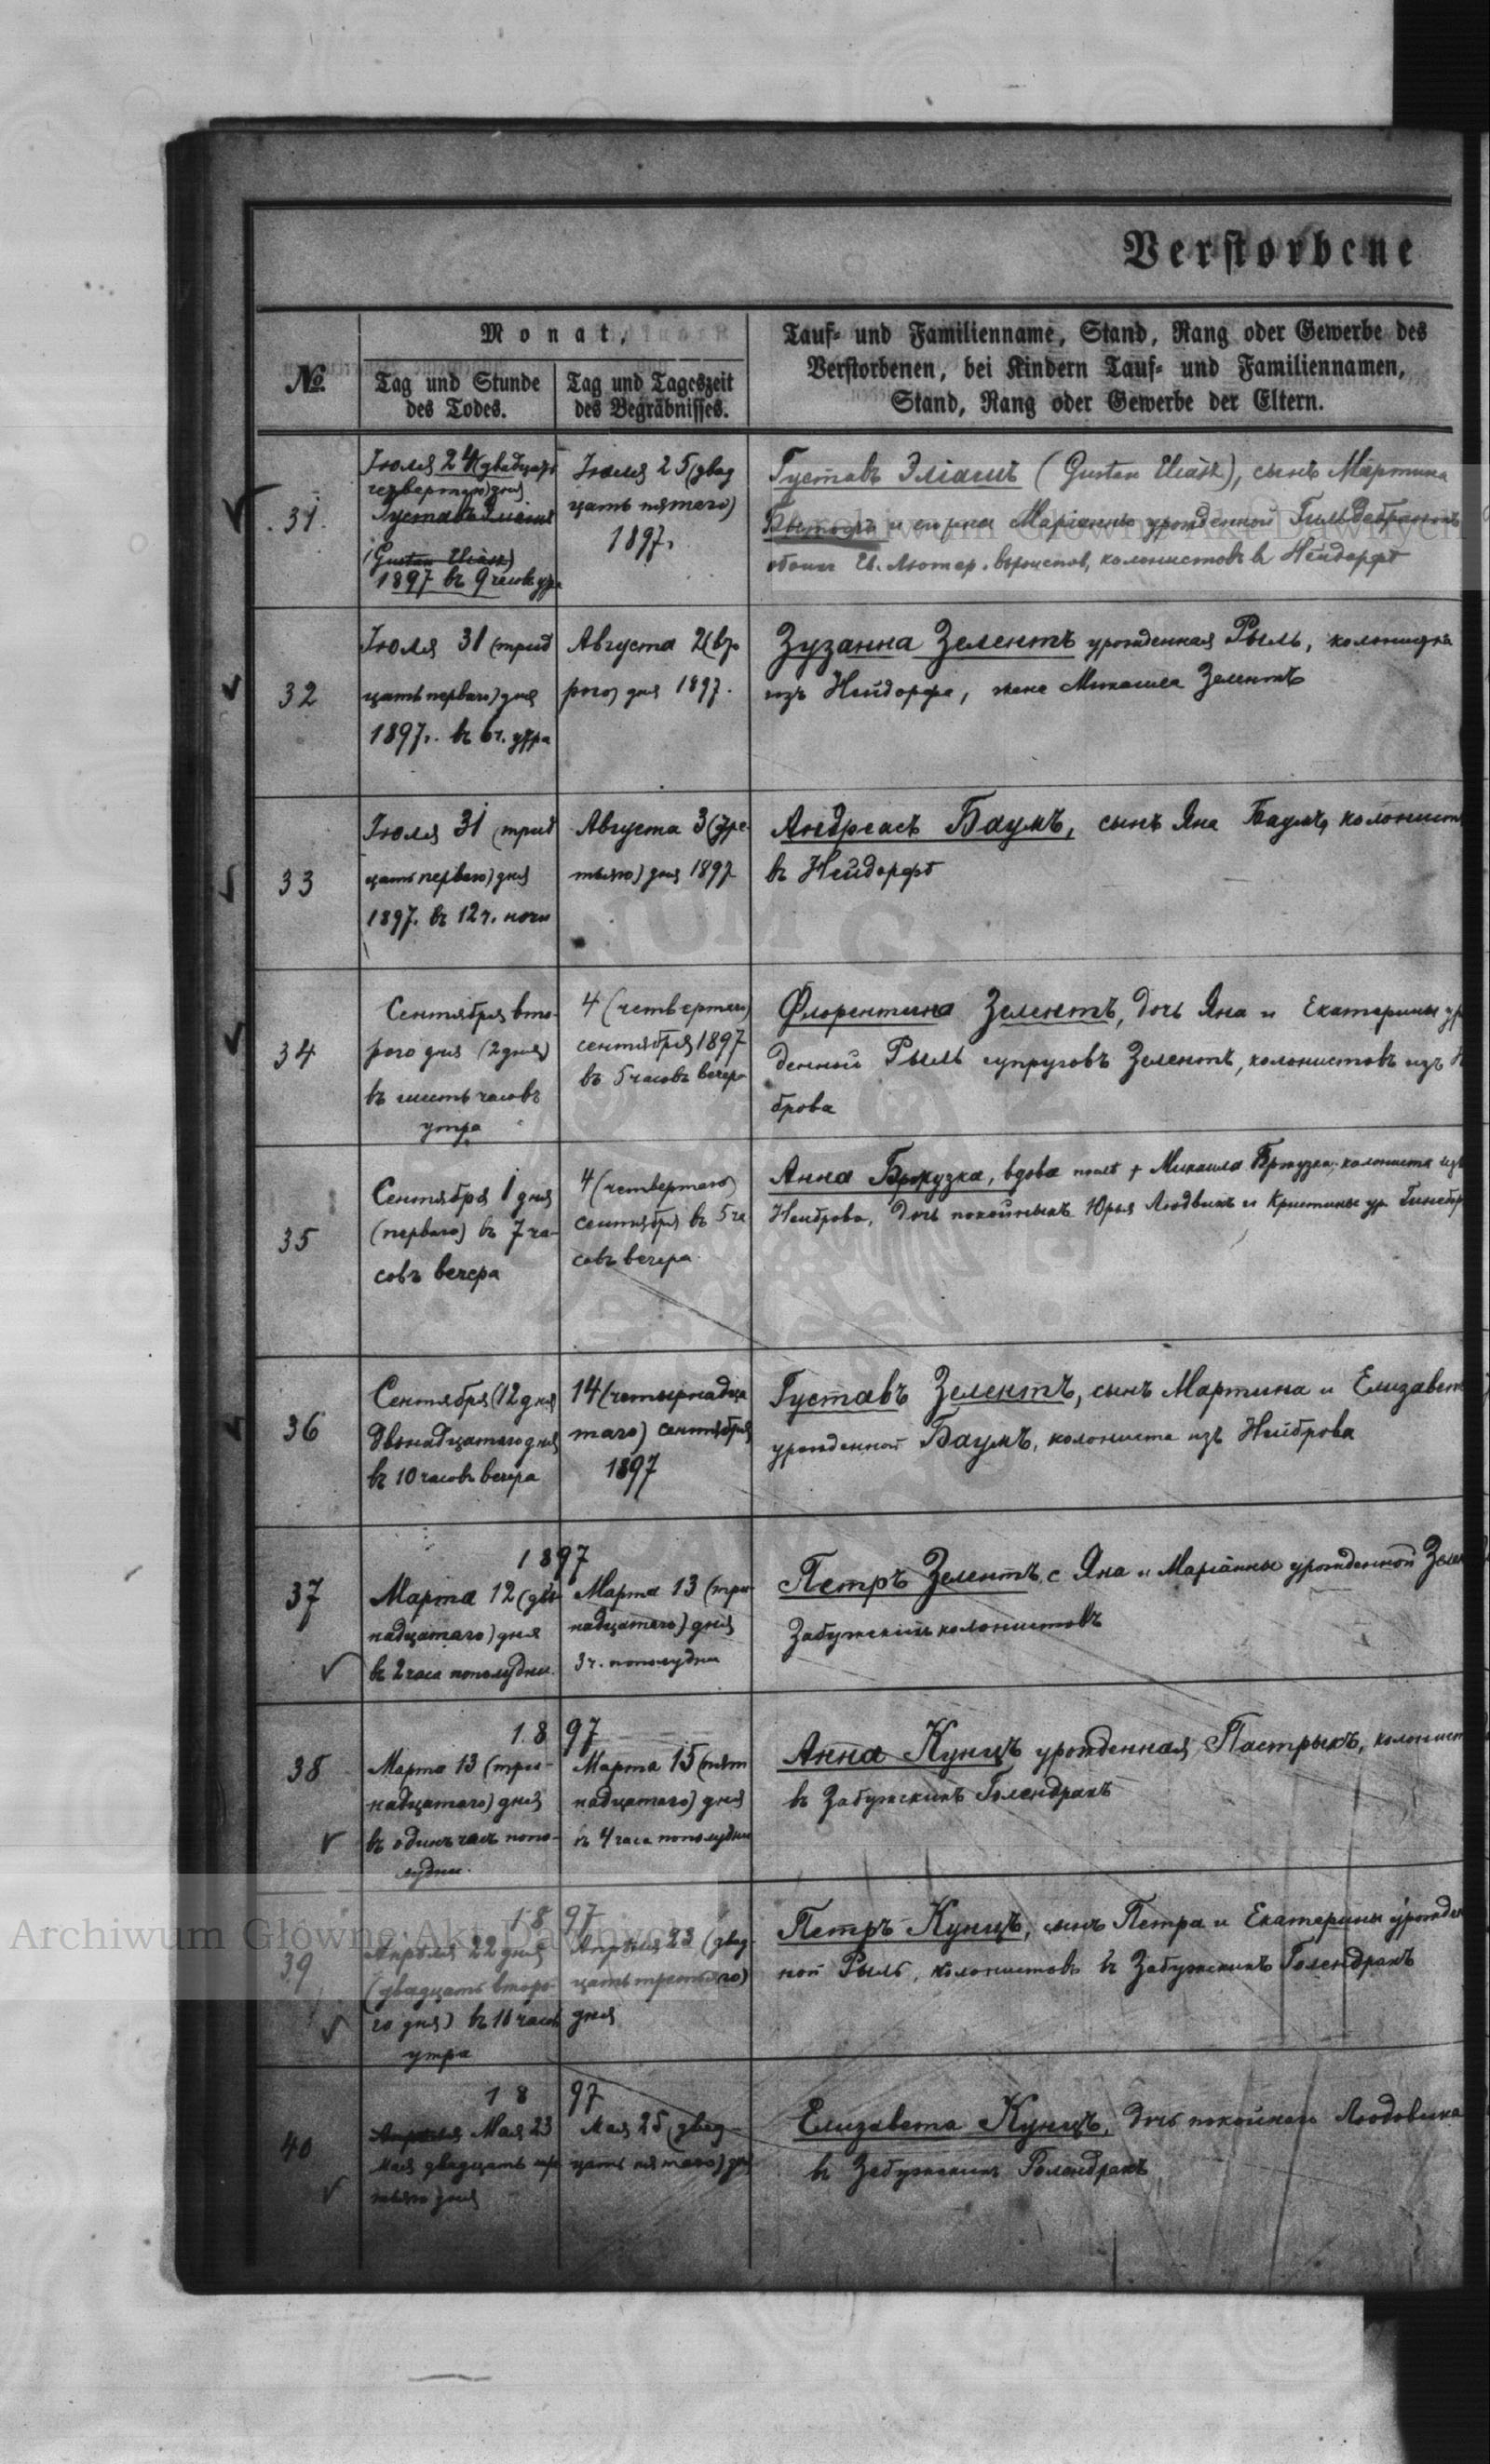 Verstorbene
№
Monat,
Tag und Stunde
des Todes.
Tag und Tageszeit
des Begräbnisses.
Tauf- und Familienname, Stand, Rang oder Gewerbe des
Verstorbenen, bei Kindern Tauf- und Familiennamen,
Stand, Rang oder Gewerbe der Eltern.
31.
Іюля 24 (двадцать
четвертаго) дня
Густавъ Эліашъ
(Gustav Eliasz)
1897 въ 9 часовъ утра
Іюля 25 (двад
цать пятаго)
1897.
Густавъ Эліашъ (Gustav Eliasz), сынъ Мартина
и Маріанны урожденной Гильдебрантъ
обоихъ Ев. Лютер. колонистовъ въ Нейдорфѣ
32
Іюля 31 (трид
цать перваго) дня
1897. въ 6 ч. утра
Августа 2 (вто
рого) дня 1897.
Зузанна Зелентъ урожденная Рыль, колонистка
изъ Нейдорфа, жена Михаила Зелентъ
33
Іюля 31 (трид
цать перваго) дня
1897. въ 12 ч. ночи
Августа 3 (тре
тьяго) дня 1897
Андреасъ Баумъ, сынъ Яна Баумъ, колонист
въ Нейдорфѣ
34
Сентября вто-
рого дня (2 дня)
въ шесть часовъ
утра
4 (четвертаго)
сентября 1897
въ 5 часовъ вечера
Флорентина Зелентъ, дочь Яна и Екатерины ур
денной Рыль супруговъ Зелентъ, колонистовъ изъ Н
брова
35
Сентября 1 дня
(перваго) въ 7 ча-
совъ вечера
4 (четвертаго)
сентября въ 5 ча
совъ вечера.
Анна Бржузка, вдова послѣ + Михаила Бржузка колониста изъ
Нейброва, дочь покойныхъ Юрья Людвикъ и Кристины ур.
36
Сентября (12 дня
двѣнадцатаго дня
въ 10 часовъ вечера
14 (четырнадца
таго) сентября
1897
Густавъ Зелентъ, сынъ Мартина и Елизавет
урожденной Баумъ, колониста изъ Нейброва
37
1897
Марта 12 (двѣ
надцатаго) дня
въ 2 часа пополудни.
Марта 13 (три-
надцатаго) дня
3 ч. пополудни
Петръ Зелентъ с Яна и Маріанны урожденной Зелен
Забужскихъ колонистовъ
38
1897
Марта 13 (три-
надцатаго) дня
въ одинъ часъ попо-
лудни.
Марта 15 (пят
надцатаго) дня
въ 4 часа пополудни
Анна Кунцъ урожденная Пастрыкъ, колонист
въ Забужскихъ Голендрахъ
39
1897
Апрѣля 22 дня
(двадцать второ-
го дня) въ 10 часовъ
утра
Апрѣля 23 (двад-
цать третьяго)
дня
Петръ Кунцъ, сынъ Петра и Екатерины урожден
ной Рыль, колонистовъ въ Забужскихъ Голендрахъ
40
1897
Апрѣля Мая 23
Мая двадцать тре
тьяго дня
Мая 25 (двад-
цать пятаго) дня
Елизавета Кунцъ, дочь покойнаго Людовика
въ Забужскихъ Голендрахъ
Archiwum Główne Akt Dawnych
Archiwum Główne Akt Dawnych